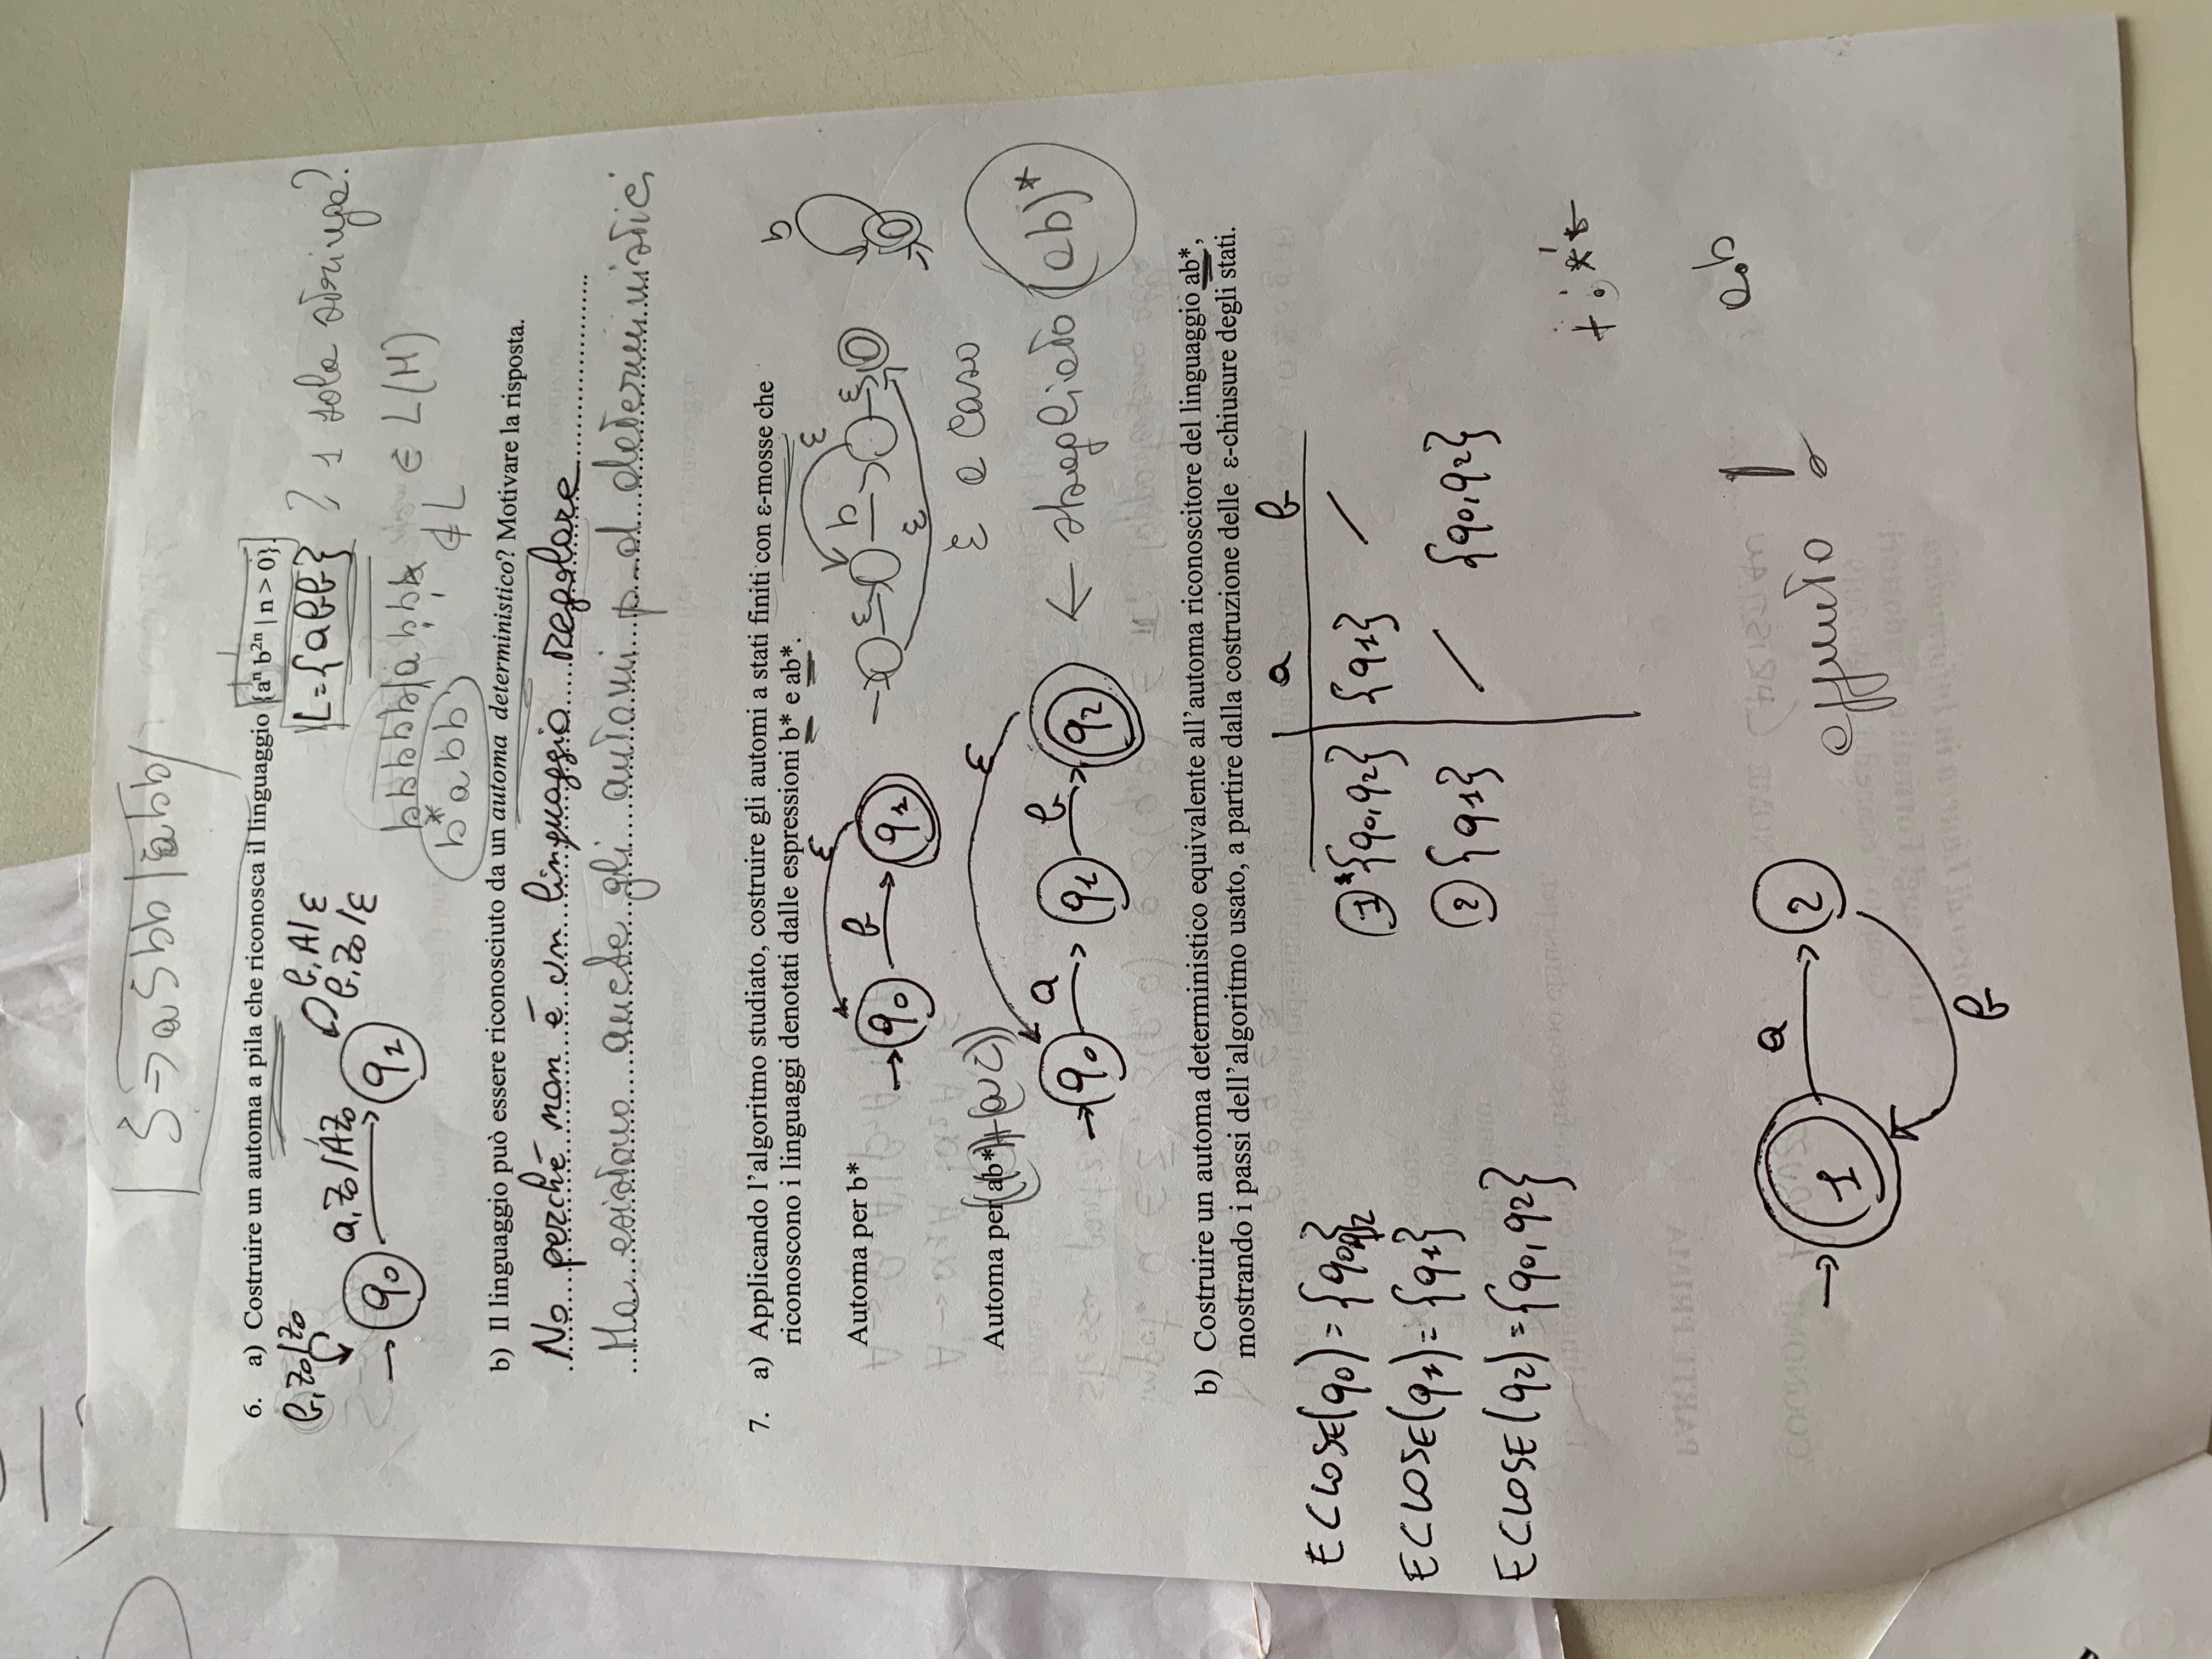 S → a S bb | abb
6. a) Costruire un automa a pila che riconosca il linguaggio {aⁿ b²ⁿ | n > 0}.
b, Z0 / Z0
a, Z0 / AZ0
b, A / ε
b, Z0 / ε
q0
q1
L = {abb} ? 1 sola stringa?
∈ L(M)
b*abb ∉ L
b) Il linguaggio può essere riconosciuto da un automa deterministico? Motivare la risposta.
No perché non è un linguaggio regolare
Ma esistono anche gli automi p. d. deterministici
7. a) Applicando l'algoritmo studiato, costruire gli automi a stati finiti con ε-mosse che
riconoscono i linguaggi denotati dalle espressioni b* e ab*.
Automa per b*
ε
q0 b q1
ε b ε ε
ε
b
ε a caso
Automa per ab*
ε
q0 a q1 b q2
← sbagliato (ab)*
b) Costruire un automa deterministico equivalente all'automa riconoscitore del linguaggio ab*,
mostrando i passi dell'algoritmo usato, a partire dalla costruzione delle ε-chiusure degli stati.
a b
ECLOSE(q0) = {q0,q2}
1 *{q0,q2} {q1} /
ECLOSE(q1) = {q1}
2 {q1} / {q0,q2}
ECLOSE(q2) = {q0,q2}
+ . * *
a.b
1 a 2
b